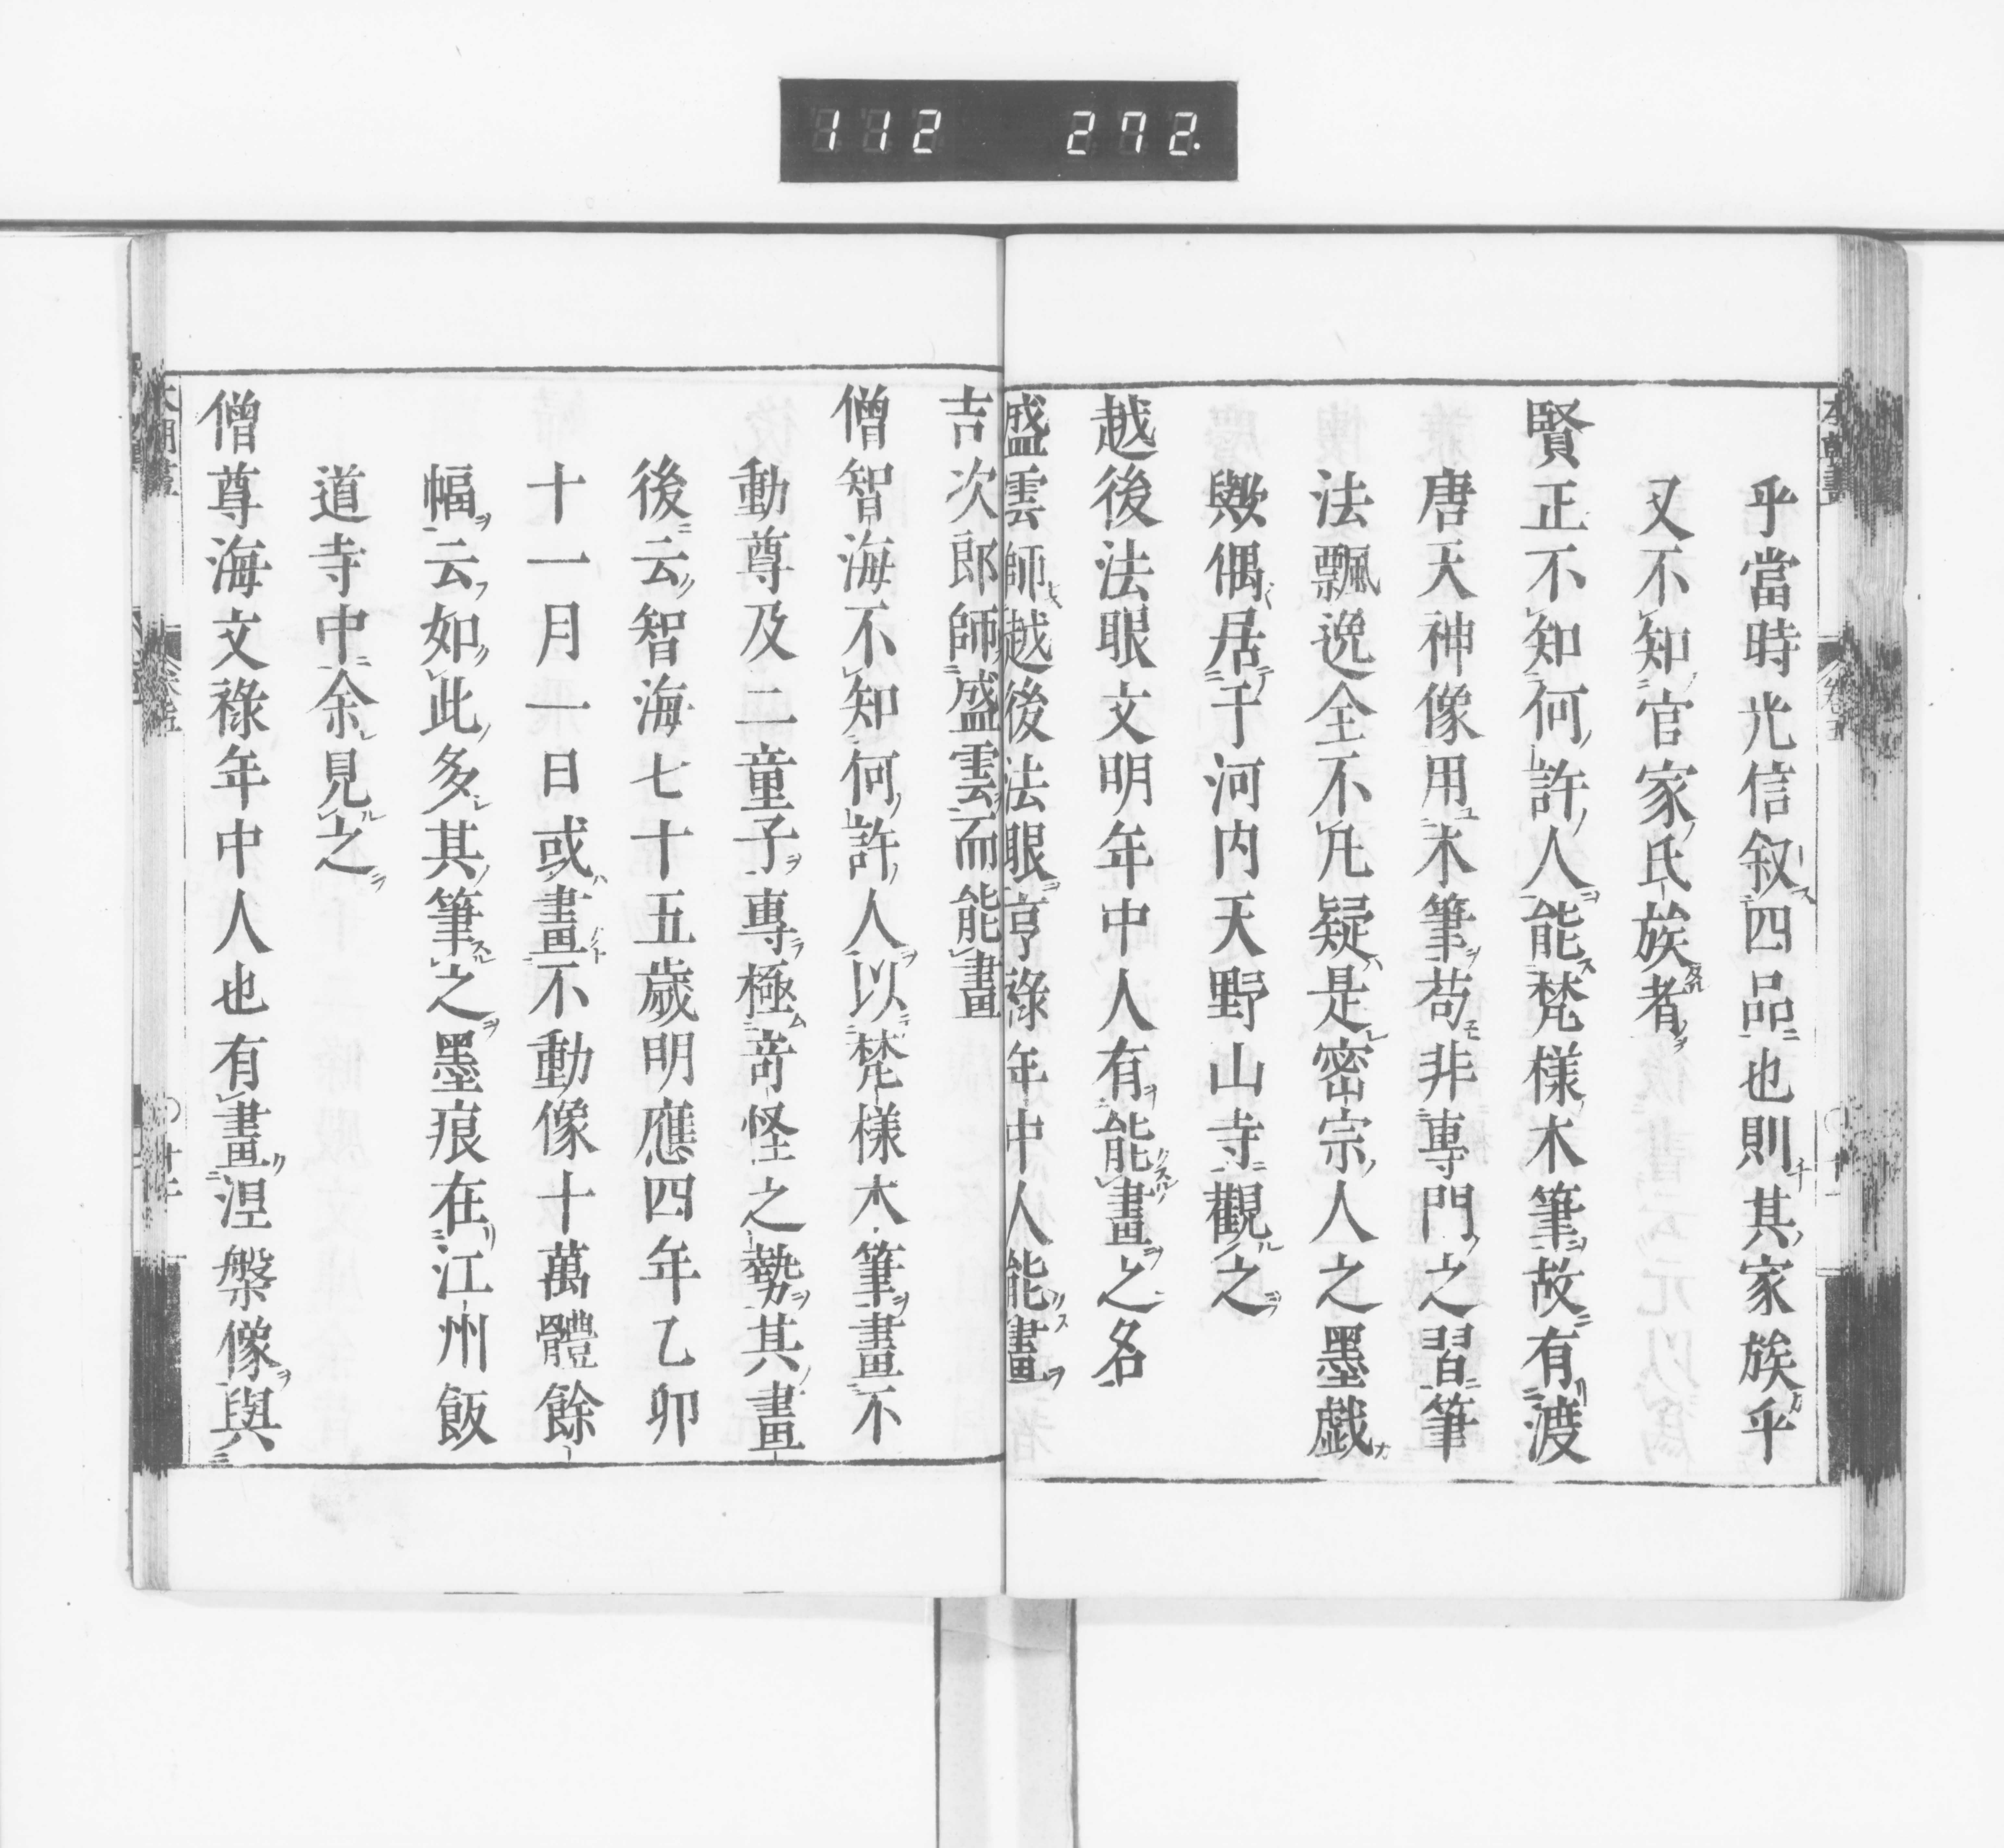 112 272.
乎當時光信叙四品也則其家族乎
又不知官家氏族者
賢正不知何許人能梵樣木筆故有渡
唐天神像用木筆苟非專門之習筆
法飄逸全不凡疑是密宗人之墨戯
歟偶居于河内天野山寺觀之
越後法眼文明年中人有能畫之名
盛雲師越後法眼亨祿年中人能畫
吉次郎師盛雲而能畫
僧智海不知何許人以梵樣木筆畫不
動尊及二童子專極奇怪之勢其畫
後云智海七十五歲明應四年乙卯
十一月一日或畫不動像十萬體餘
幅云如此多其筆之墨痕在江州飯
道寺中余見之
僧尊海文祿年中人也有畫涅槃像與